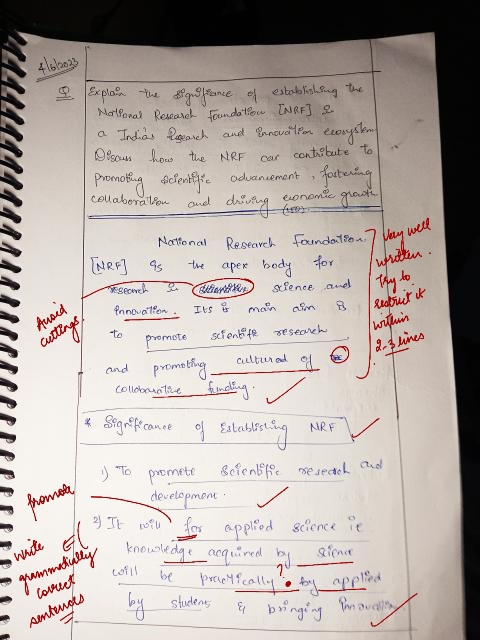 4/6/2023
Q Explain the significance of establishing the
National Research Foundation [NRF] &
a India's Research and innovation ecosystem
Discuss how the NRF can contribute to
promoting scientific advancement, fostering
collaboration and driving economic growth
National Research Foundation
[NRF] is the apex body for
research & science and
innovation. Its is main aim is
to promote scientific research
and promoting cultured of
collaborative funding.
Avoid
cuttings
Very well
written.
Try to
restrict it
within
2-3 lines
* Significance of Establishing NRF
1) To promote scientific research and
development.
promote
2) It will for applied science ie
knowledge acquired by science
will be practically ? by applied
by student & bringing innovation
write
grammatically
correct
sentences